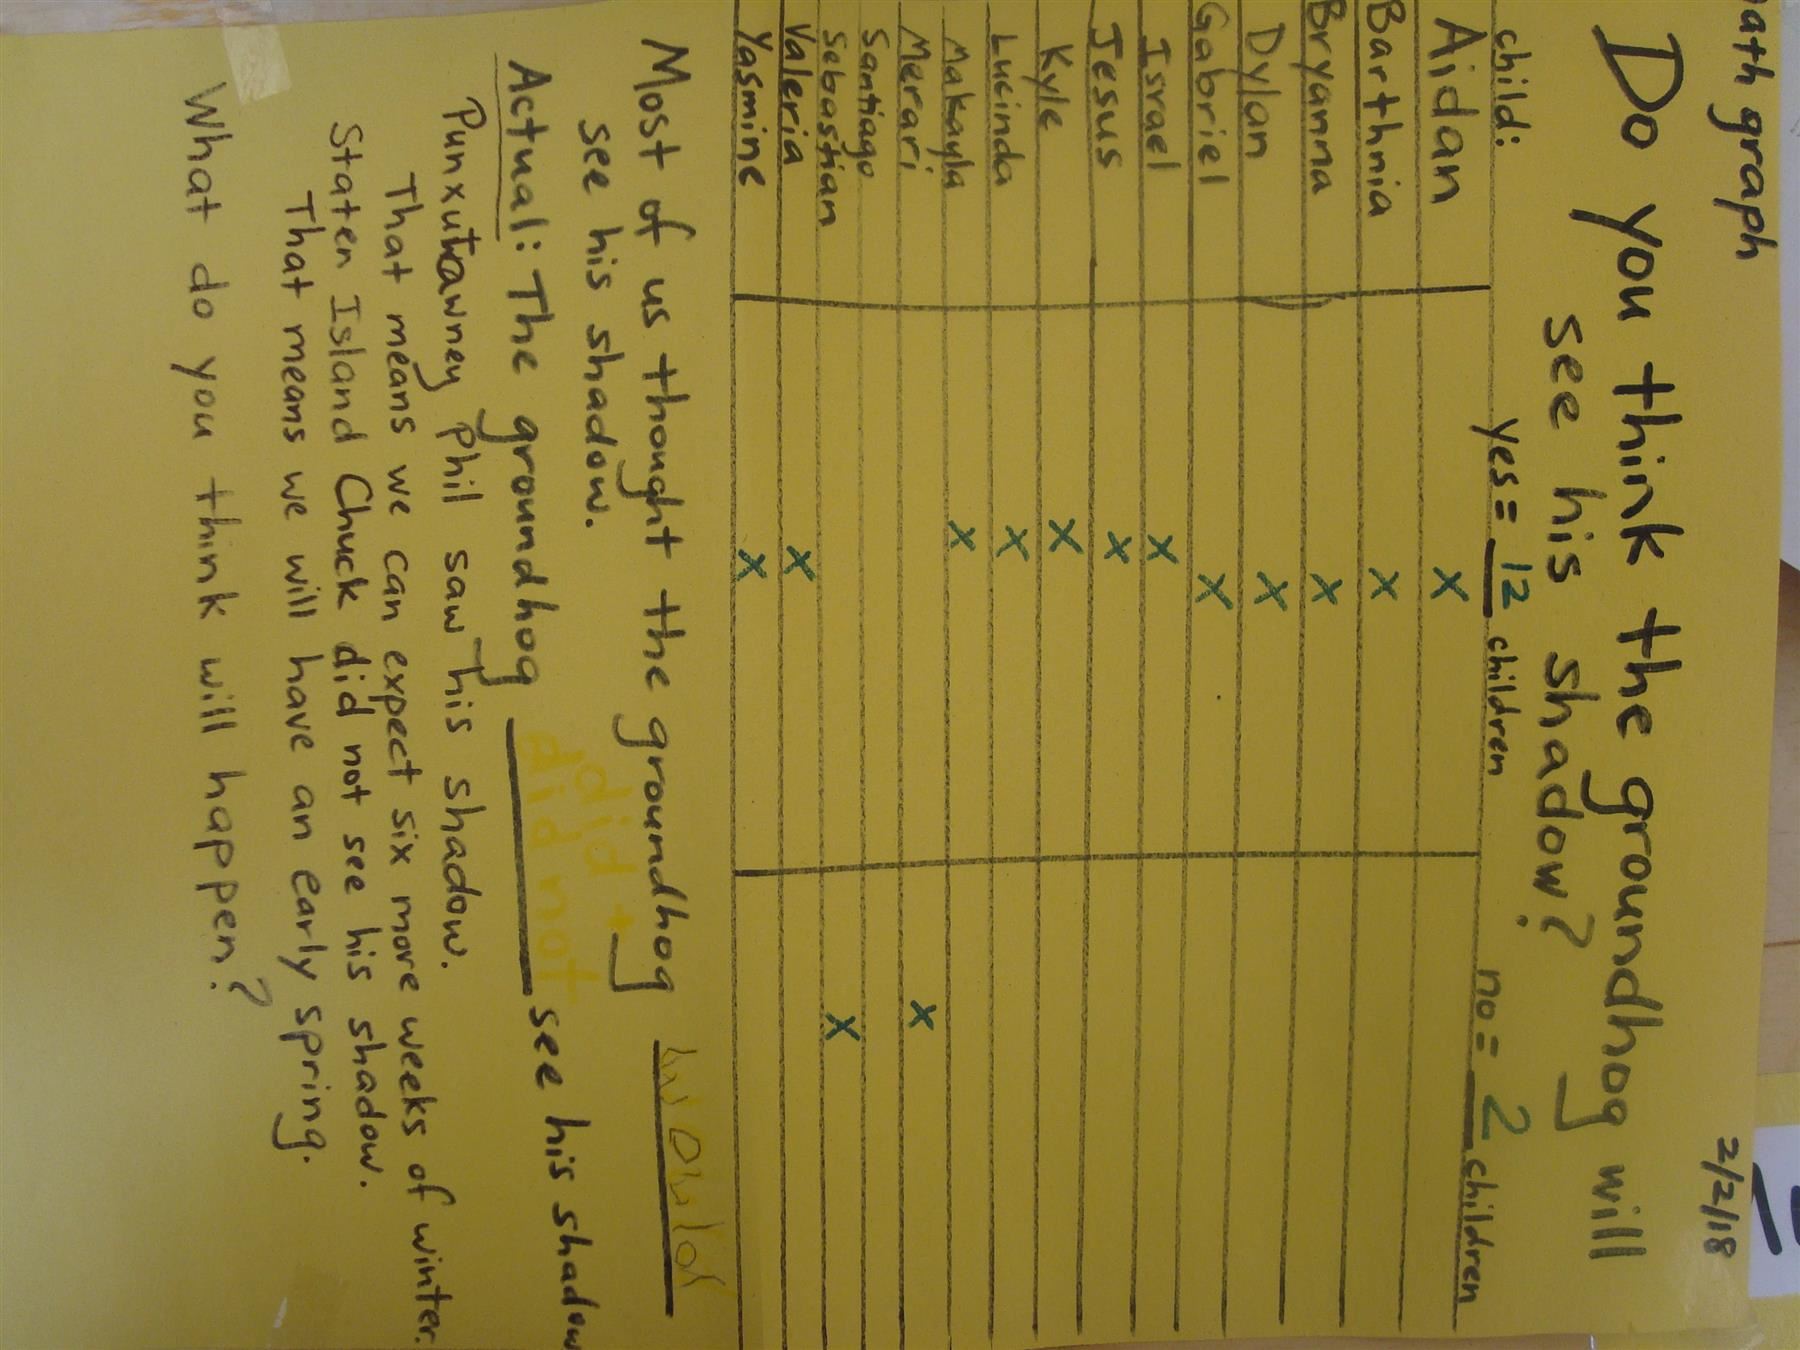 ath graph
2/2/18
Do you think the groundhog will
see his shadow?
child: yes = 12 children no = 2 children
Aidan X
Barthnia X
Bryanna X
Dylan X
Gabriel X
Israel X
Jesus X
Kyle X
Lucinda X
Makayla X
Merari X
Santiago
Sebastian X
Valeria X
Yasmine X
Most of us thought the groundhog would
see his shadow.
did +
Actual: The groundhog did not see his shadow
Punxutawney Phil saw his shadow.
That means we can expect six more weeks of winter.
Staten Island Chuck did not see his shadow.
That means we will have an early spring.
What do you think will happen?